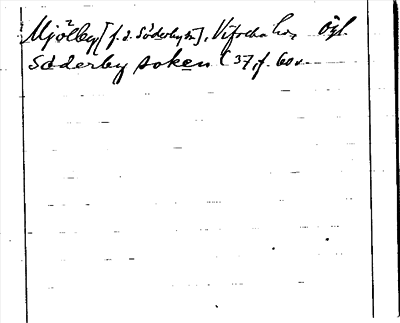 Mjölby [f.d. Söderby sn], Vifolka hd, Ögl.
Söderby soken (37, f. 60v